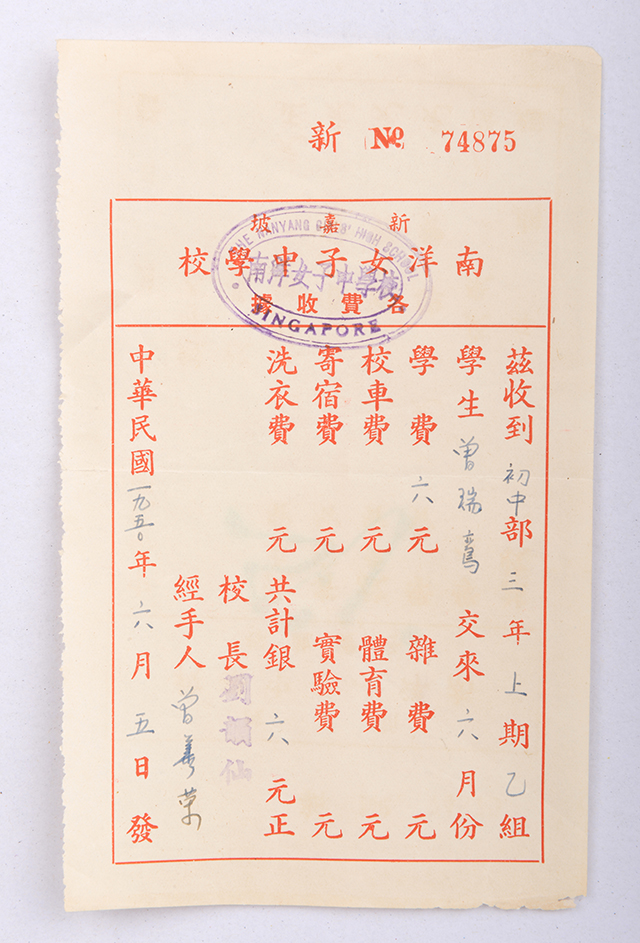 新 No 74875
新嘉坡
南洋女子中學校
各費收據
THE NANYANG GIRLS' HIGH SCHOOL
南洋女子中學校
SINGAPORE
茲收到初中部三年上期乙組
學生曾瑞鸾交來六月份
學費六元 雜費元
校車費元 體育費元
寄宿費元 實驗費元
洗衣費元 共計銀六元正
校長劉韻仙
經手人曾
中華民國一九五〇年六月五日發